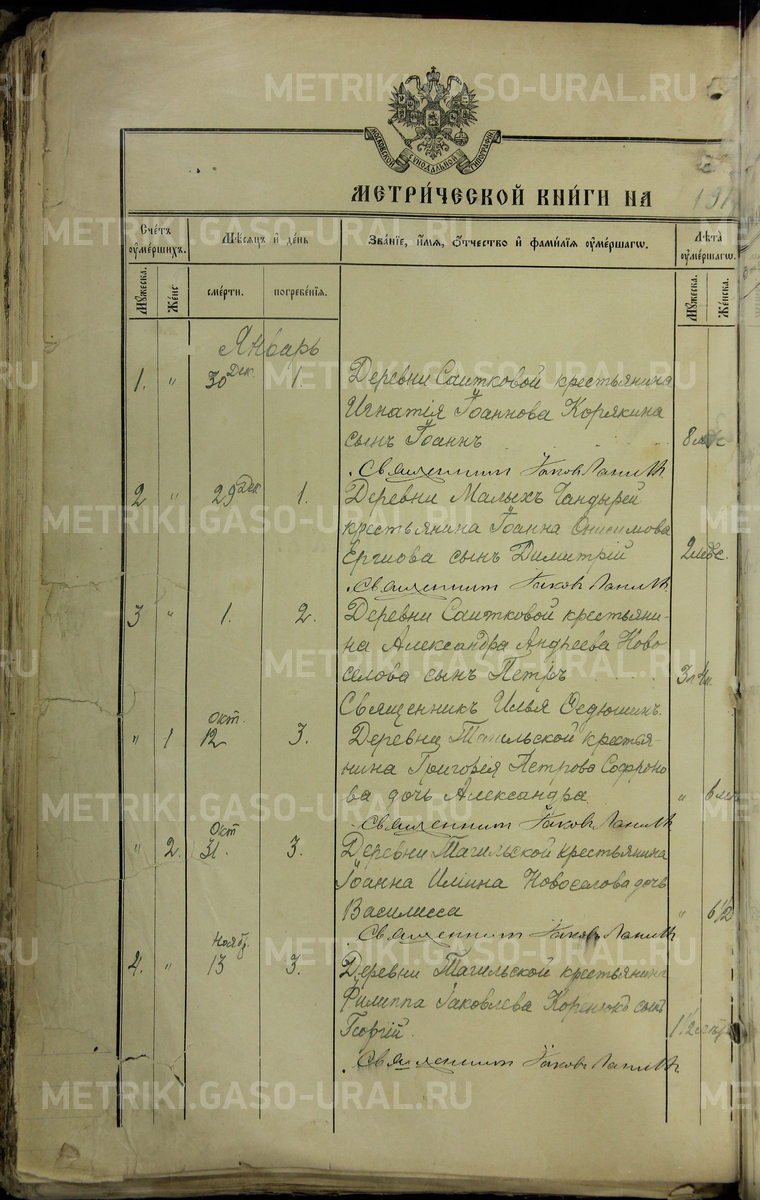 METRIKI.GASO-URAL.RU
МОСКОВСКОЙ СѴНОДАЛЬНОЙ ТИПОГРАФІИ
МЕТРИ́ЧЕСКОЙ КНИ́ГИ НА 191
Сче́тъ ᲂу҆ме́ршихъ.
Мѣ́сяцъ и҆ де́нь
Зва́нїе, и҆́мѧ, Ѻ҆́тчество и҆ фами́лїѧ ᲂу҆ме́ршагѡ.
Лѣ́та ᲂу҆ме́ршагѡ.
Му́жеска.
Же́нс
сме́рти.
погребе́нїѧ.
Му́жеска.
Же́нска.
Январь
1. " 30 Дек. 1. Деревни Саитковой крестьянина
Игнатія Іоаннова Корякина
сынъ Іоаннъ 8 мѣс
Священник Іаков
2 " 29 Дек 1. Деревни Малыхъ Чандырей
крестьянина Іоанна Онисимова
сынъ Димитрій 2 мѣс.
Священник Іаков
3 " 1. 2. Деревни Саитковой крестьяни-
на Александра Андреева Ново-
селова сынъ Петръ
Священникъ Илья Федюшинъ.
" 1 Окт. 12 3. Деревни Тагильской крестья-
нина Григорія Петрова Софроно-
ва дочь Александра " 6
Священник Іаков
" 2. Окт 31. 3. Деревни Тагильской крестьянина
Іоанна Иліина Новоселова дочь
Василисса " 6 1/2
Священник Іаков
4. " Нояб. 13 3. Деревни Тагильской крестьянина
Филиппа Іаковлева сынъ
Георгій. 1 1/2
Священник Іаков